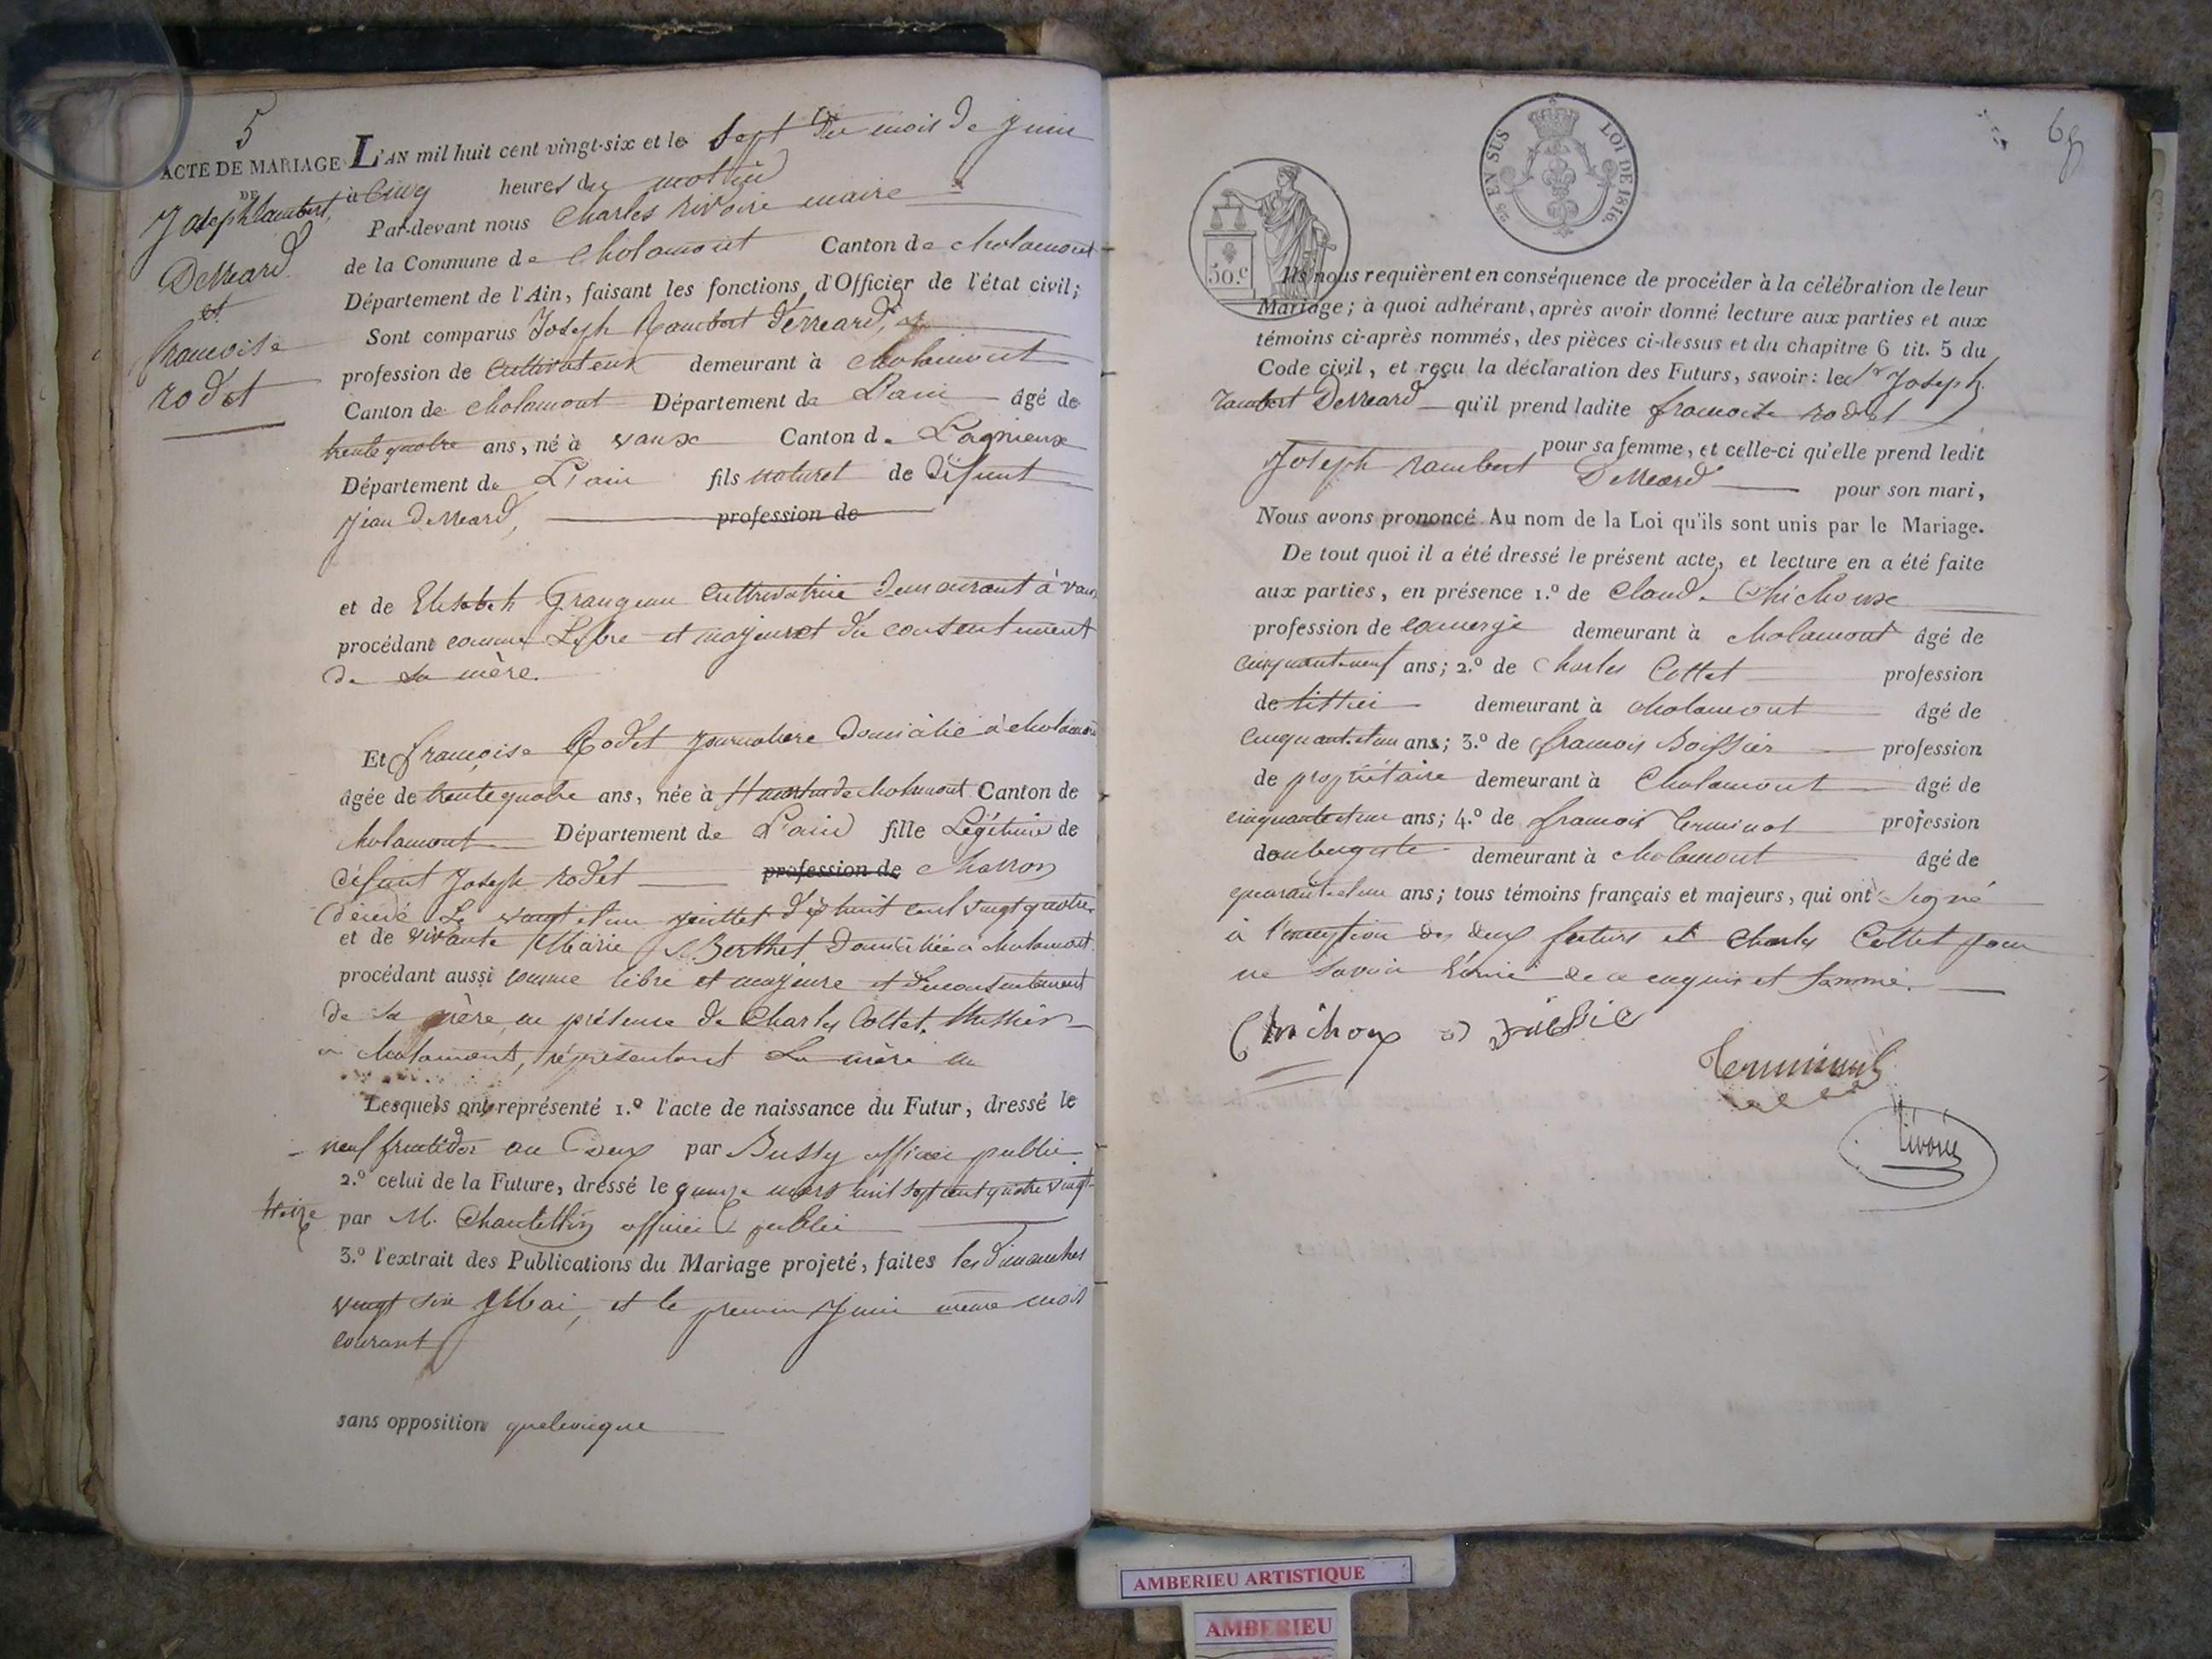 5
ACTE DE MARIAGE
DE
Joseph Rambert
Derreard
et
francoise
rodet
L'AN mil huit cent vingt-six et le Sept du mois de Juin
à Cinq heures du matin
Par-devant nous Charles rivoire maire
de la Commune de Chalamont Canton de chalamont
Département de l'Ain, faisant les fonctions d'Officier de l'état civil;
Sont comparus Joseph Rambert Derreard,
profession de Cultivateur demeurant à chalamont
Canton de chalamont Département de L'ain âgé de
trente quatre ans, né à vaux Canton de Lagnieux
Département de L'ain fils naturel de Défunt
Jean Derreard, profession de
et de Elisabeth Grangean Cultivatrice demeurant à vaux
procédant comme Libre et majeur et du consentement
de sa mère.
Et françoise Rodet Journaliere Domicilié à chalamont
âgée de trente quatre ans, née à de chalamont Canton de
chalamont Département de L'ain fille Légitime de
défunt Joseph rodet profession de charron
décédé Le vingt et un juillet dix huit cent vingt quatre
et de vivante Marie Berthet, Domiciliée à chalamont
procédant aussi comme libre et majeure et du consentement
de sa mère en présence de Charles Cottet,
a chalamont, représentant sa mère
Lesquels ont représenté 1.º l'acte de naissance du Futur, dressé le
neuf fructidor an Deux par Bussy officier public
2.º celui de la Future, dressé le quinze mars mil sept cent quatre vingt
treize par M. officier public
3.º l'extrait des Publications du Mariage projeté, faites les dimanches
vingt six Mai, et le premier Juin même mois
courant
sans opposition quelconque
6
25 EN SUS LOI DE 1816.
50.c
Ils nous requièrent en conséquence de procéder à la célébration de leur
Mariage; à quoi adhérant, après avoir donné lecture aux parties et aux
témoins ci-après nommés, des pièces ci-dessus et du chapitre 6 tit. 5 du
Code civil, et reçu la déclaration des Futurs, savoir: led Sr Joseph
rambert Derreard qu'il prend ladite francoise rodet
pour sa femme, et celle-ci qu'elle prend ledit
Joseph rambert Derreard pour son mari,
Nous avons prononcé Au nom de la Loi qu'ils sont unis par le Mariage.
De tout quoi il a été dressé le présent acte, et lecture en a été faite
aux parties, en présence 1.º de Claude Chichoux
profession de concierge demeurant à chalamont âgé de
cinquante neuf ans; 2.º de Charles Cottet profession
de demeurant à chalamont âgé de
cinquante et un ans; 3.º de francois Boissier profession
de propriétaire demeurant à Chalamont âgé de
cinquante et un ans; 4.º de francois Terminot profession
d'aubergiste demeurant à chalamont âgé de
quarante et un ans; tous témoins français et majeurs, qui ont signé
à l'exception des deux futurs et Charles Cottet pour
ne savoir de ce enquis et sommé.
Chichoux
rivoire
AMBERIEU ARTISTIQUE
AMBERIEU